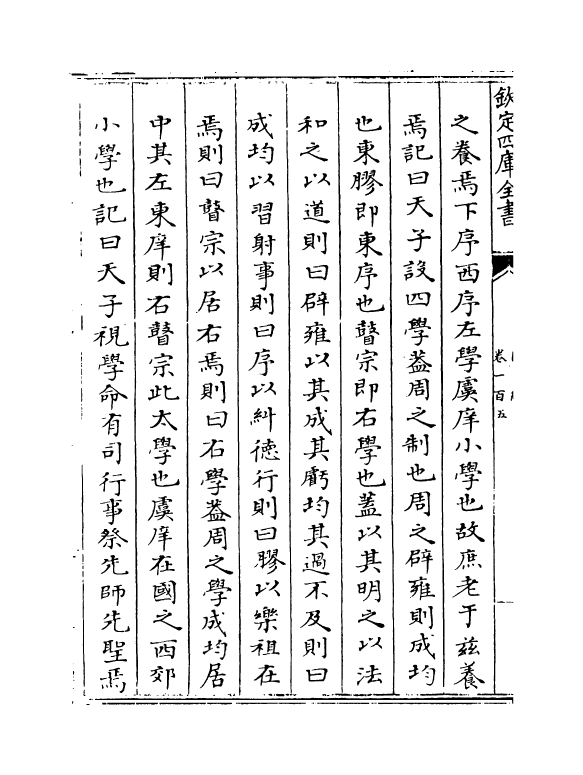 欽定四庫全書
卷一百五
之養焉下序西序左學虞庠小學也故庶老于兹養
焉記曰天子設四學葢周之制也周之辟雍則成均
也東膠即東序也瞽宗即右學也蓋以其明之以法
和之以道則曰辟雍以其成其虧均其過不及則曰
成均以習射事則曰序以糾德行則曰膠以樂祖在
焉則曰瞽宗以居右焉則曰右學葢周之學成均居
中其左東庠則右瞽宗此太學也虞庠在國之西郊
小學也記曰天子視學命有司行事祭先師先聖焉